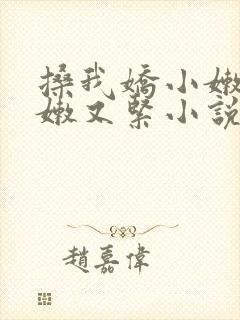 搡我嬌小嫩
嫩又緊小說
趙嘉偉